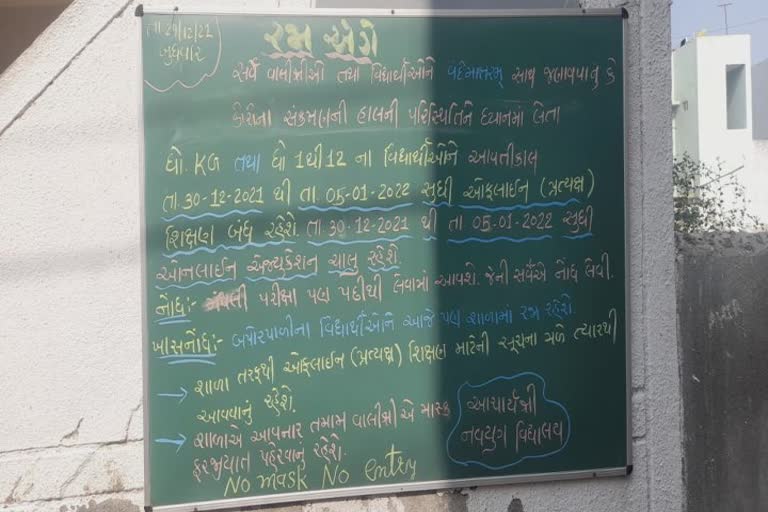 તા 29/12/21
બુધવાર
રજા અંગે
સર્વે વાલીશ્રીઓ તથા વિદ્યાર્થીઓને વંદેમાતરમ્ સાથ જણાવવાનું કે
કોરોના સંક્રમણની હાલની પરિસ્થિતિને ધ્યાનમાં લેતા
ધો. KG તથા ધો 1 થી 12 ના વિદ્યાર્થીઓને આવતીકાલ
તા. 30-12-2021 થી તા. 05-01-2022 સુધી ઓફલાઈન (પ્રત્યક્ષ)
શિક્ષણ બંધ રહેશે. તા. 30-12-2021 થી તા 05-01-2022 સુધી
ઓનલાઈન એજ્યુકેશન ચાલુ રહેશે.
નોંધ:- પરીક્ષા પણ પછીથી લેવામાં આવશે. જેની સર્વેએ નોંધ લેવી.
ખાસનોંધ:- બપોરપાળીના વિદ્યાર્થીઓને આજે પણ શાળામાં રજા રહેશે.
→ શાળા તરફથી ઓફલાઈન (પ્રત્યક્ષ) શિક્ષણ માટેની સૂચના મળે ત્યારથી
આવવાનું રહેશે.
→ શાળાએ આવનાર તમામ વાલીશ્રીએ માસ્ક
ફરજીયાત પહેરવાનું રહેશે.
No mask No entry
આચાર્યશ્રી
નવયુગ વિદ્યાલય